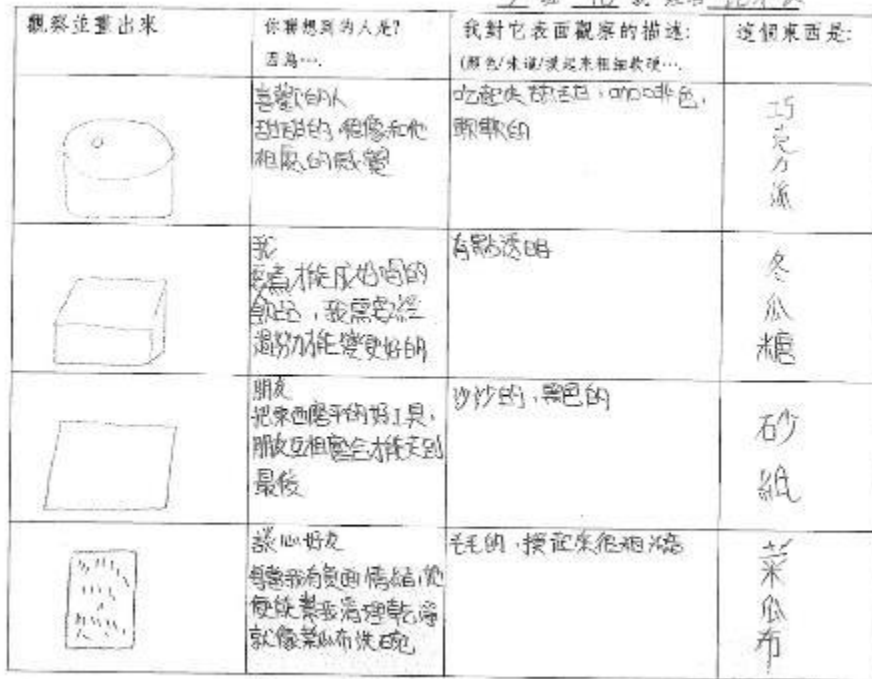 觀察並畫出來
你聯想到的人是?
因為…
我對它表面觀察的描述:
(顏色/味道/摸起來粗細軟硬…
這個東西是:
喜歡的人
甜甜的,很像和他
相處的感覺
吃起來甜甜,咖啡色,
軟軟的
巧克力派
我
要煮才能成好喝的
飲品,我需要經
過努力才能變更好的
有點透明
冬瓜糖
朋友
把東西磨平的好工具,
朋友互相磨合才能走到
最後
沙沙的,黑色的
砂紙
談心好友
每當我有負面情緒,他
便能幫我清理乾淨
就像菜瓜布洗碗
毛毛的,摸起來很粗糙
菜瓜布